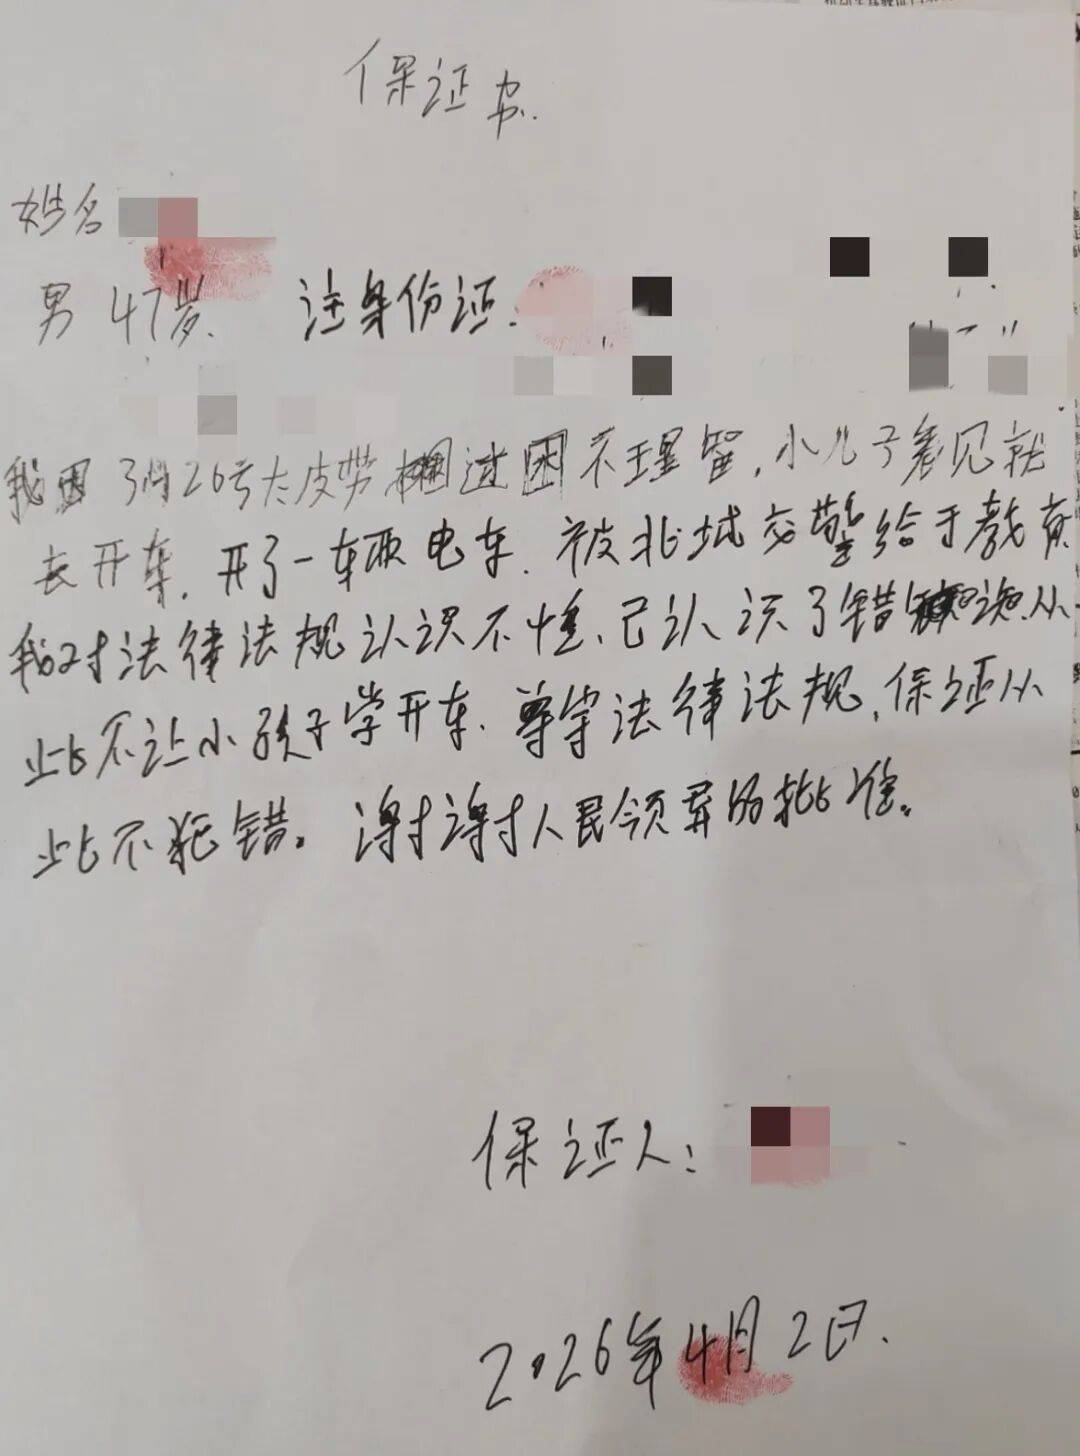 保证书.
姓名
男 47岁. 注身份证:
我因3月26号大皮带 过困不理智,小儿子看见就
去开车,开了一车取电车.被北城交警给于教育
我对法律法规认识不懂、已认识了错 从
此不让小孩子学开车.尊守法律法规,保证从
此不犯错。谢谢人民领导的批准。
保证人:
2026年4月2日.